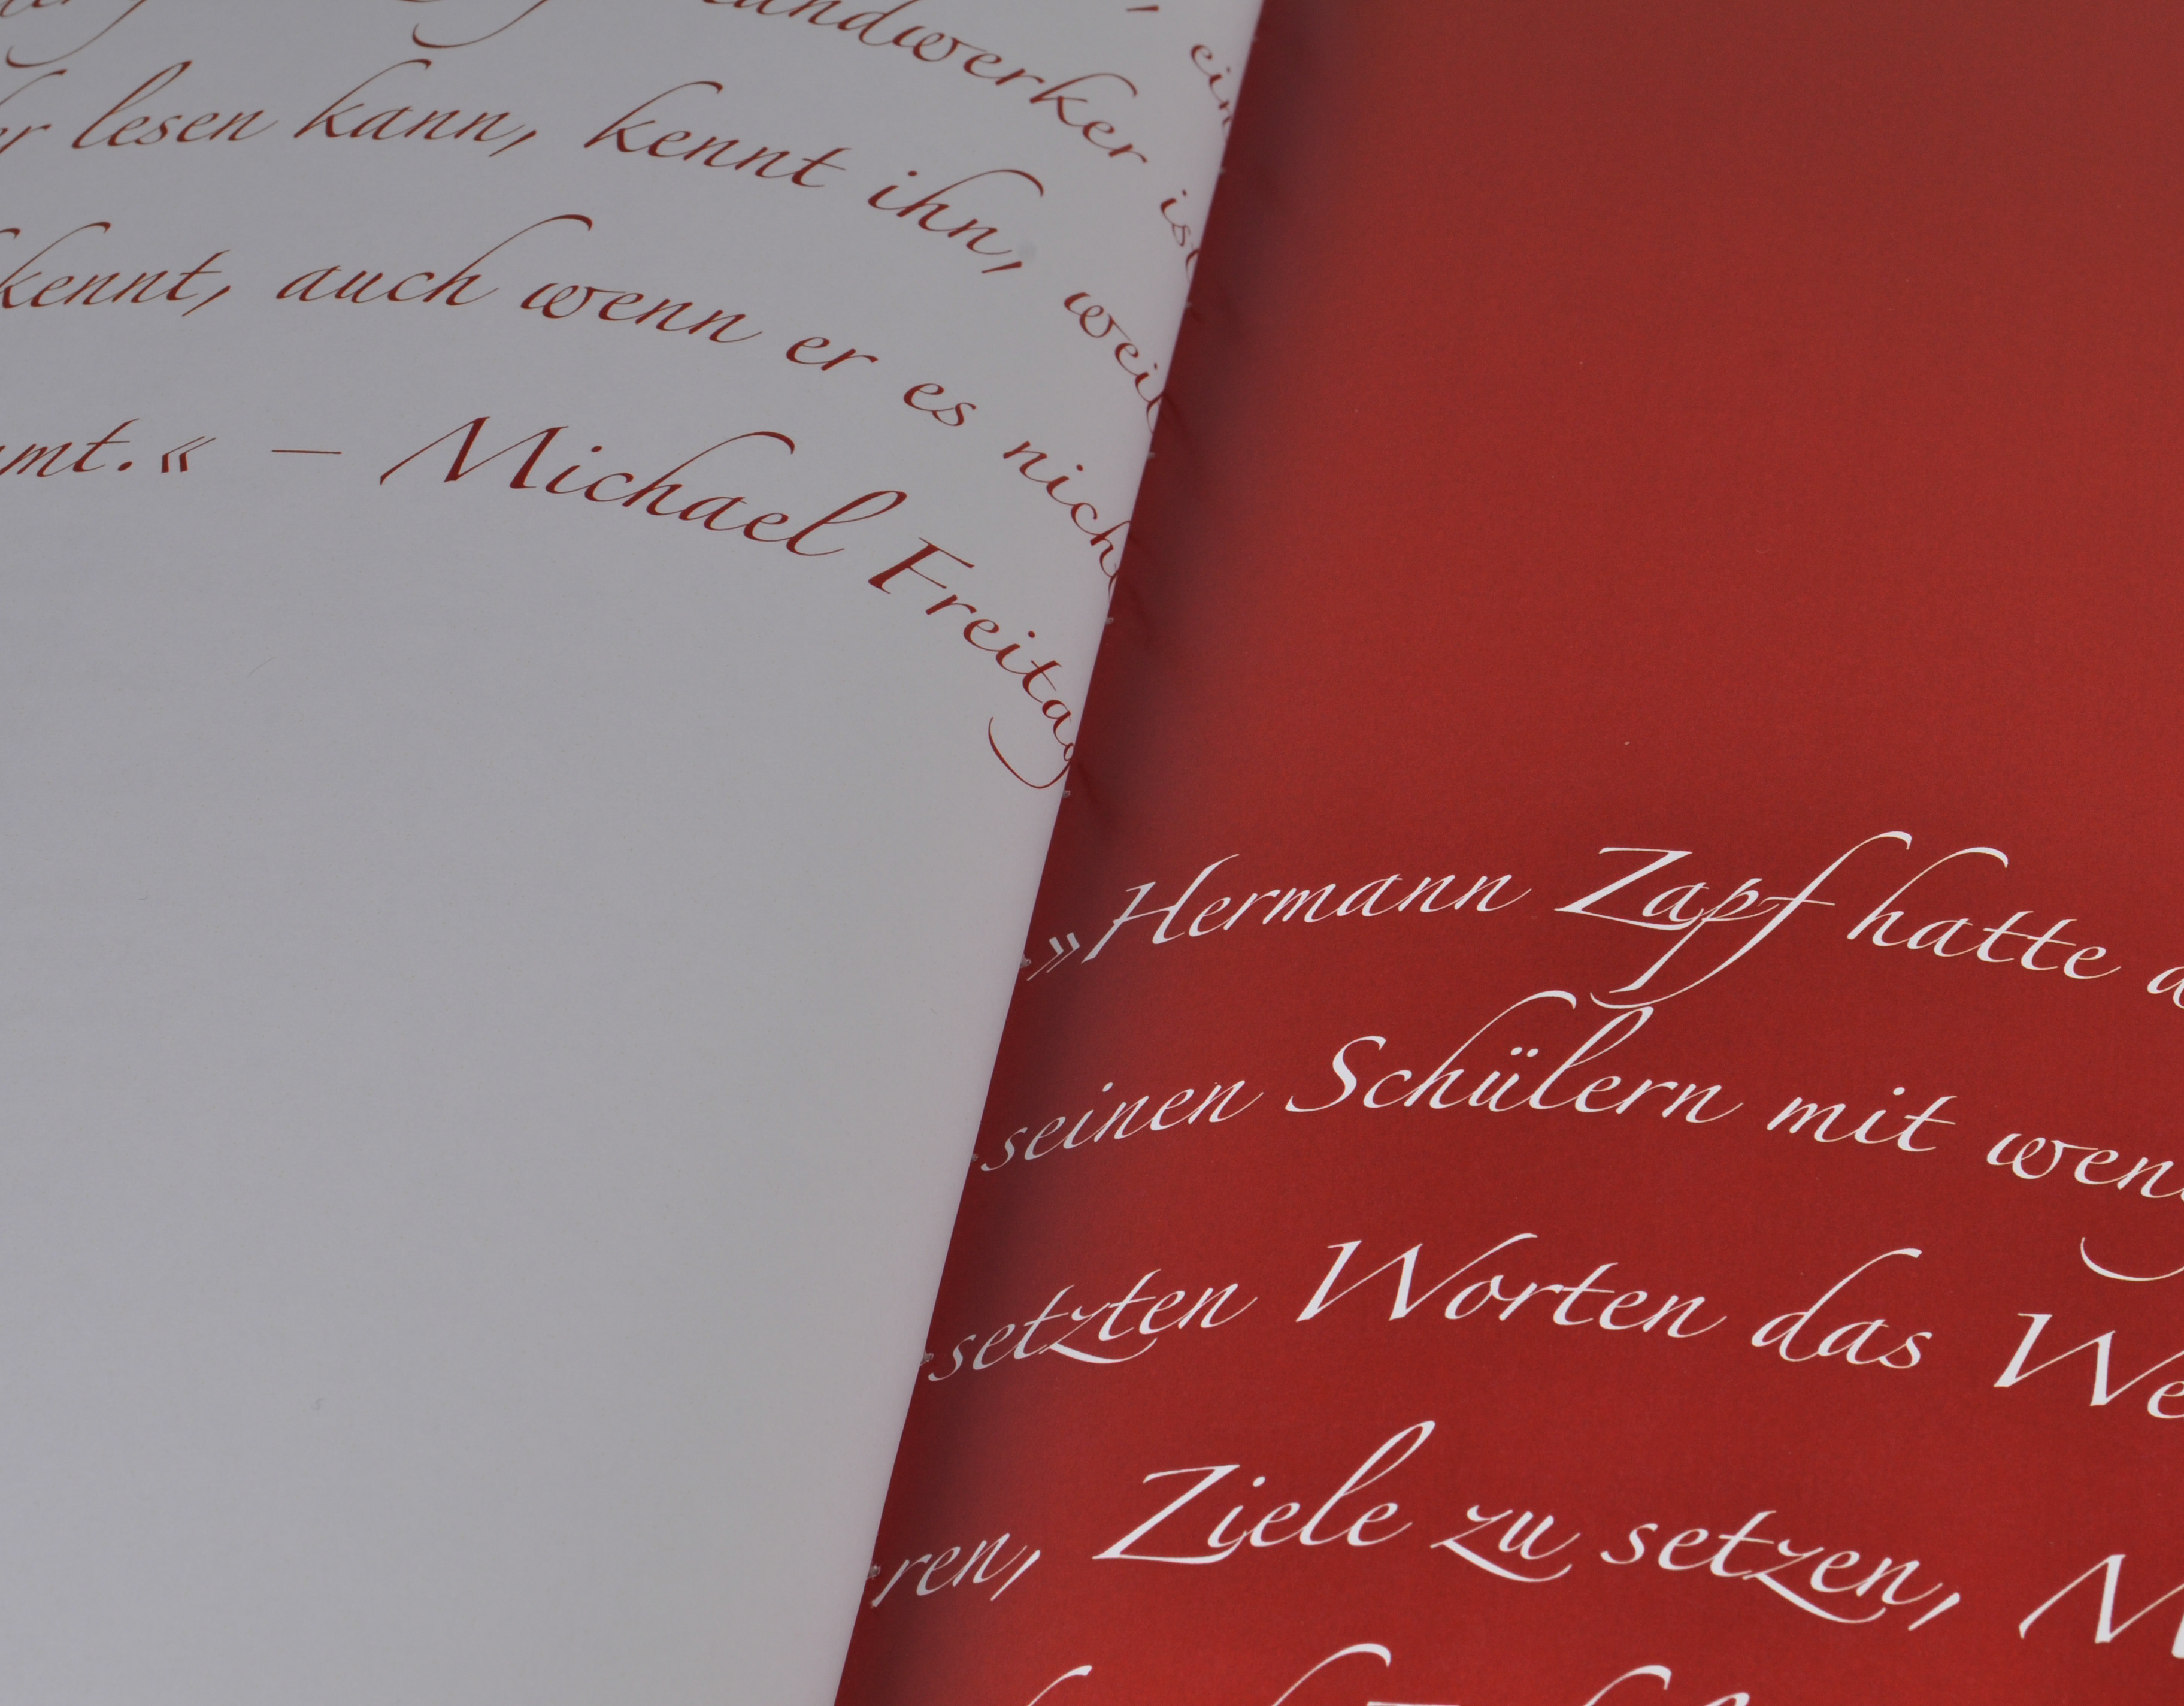 lesen kann, kennt ihn, weil
kennt, auch wenn er es nich
mt.« — Michael Freitag
»Hermann Zapf hatte
seinen Schülern mit wen
setzten Worten das We
ren, Ziele zu setzen, M